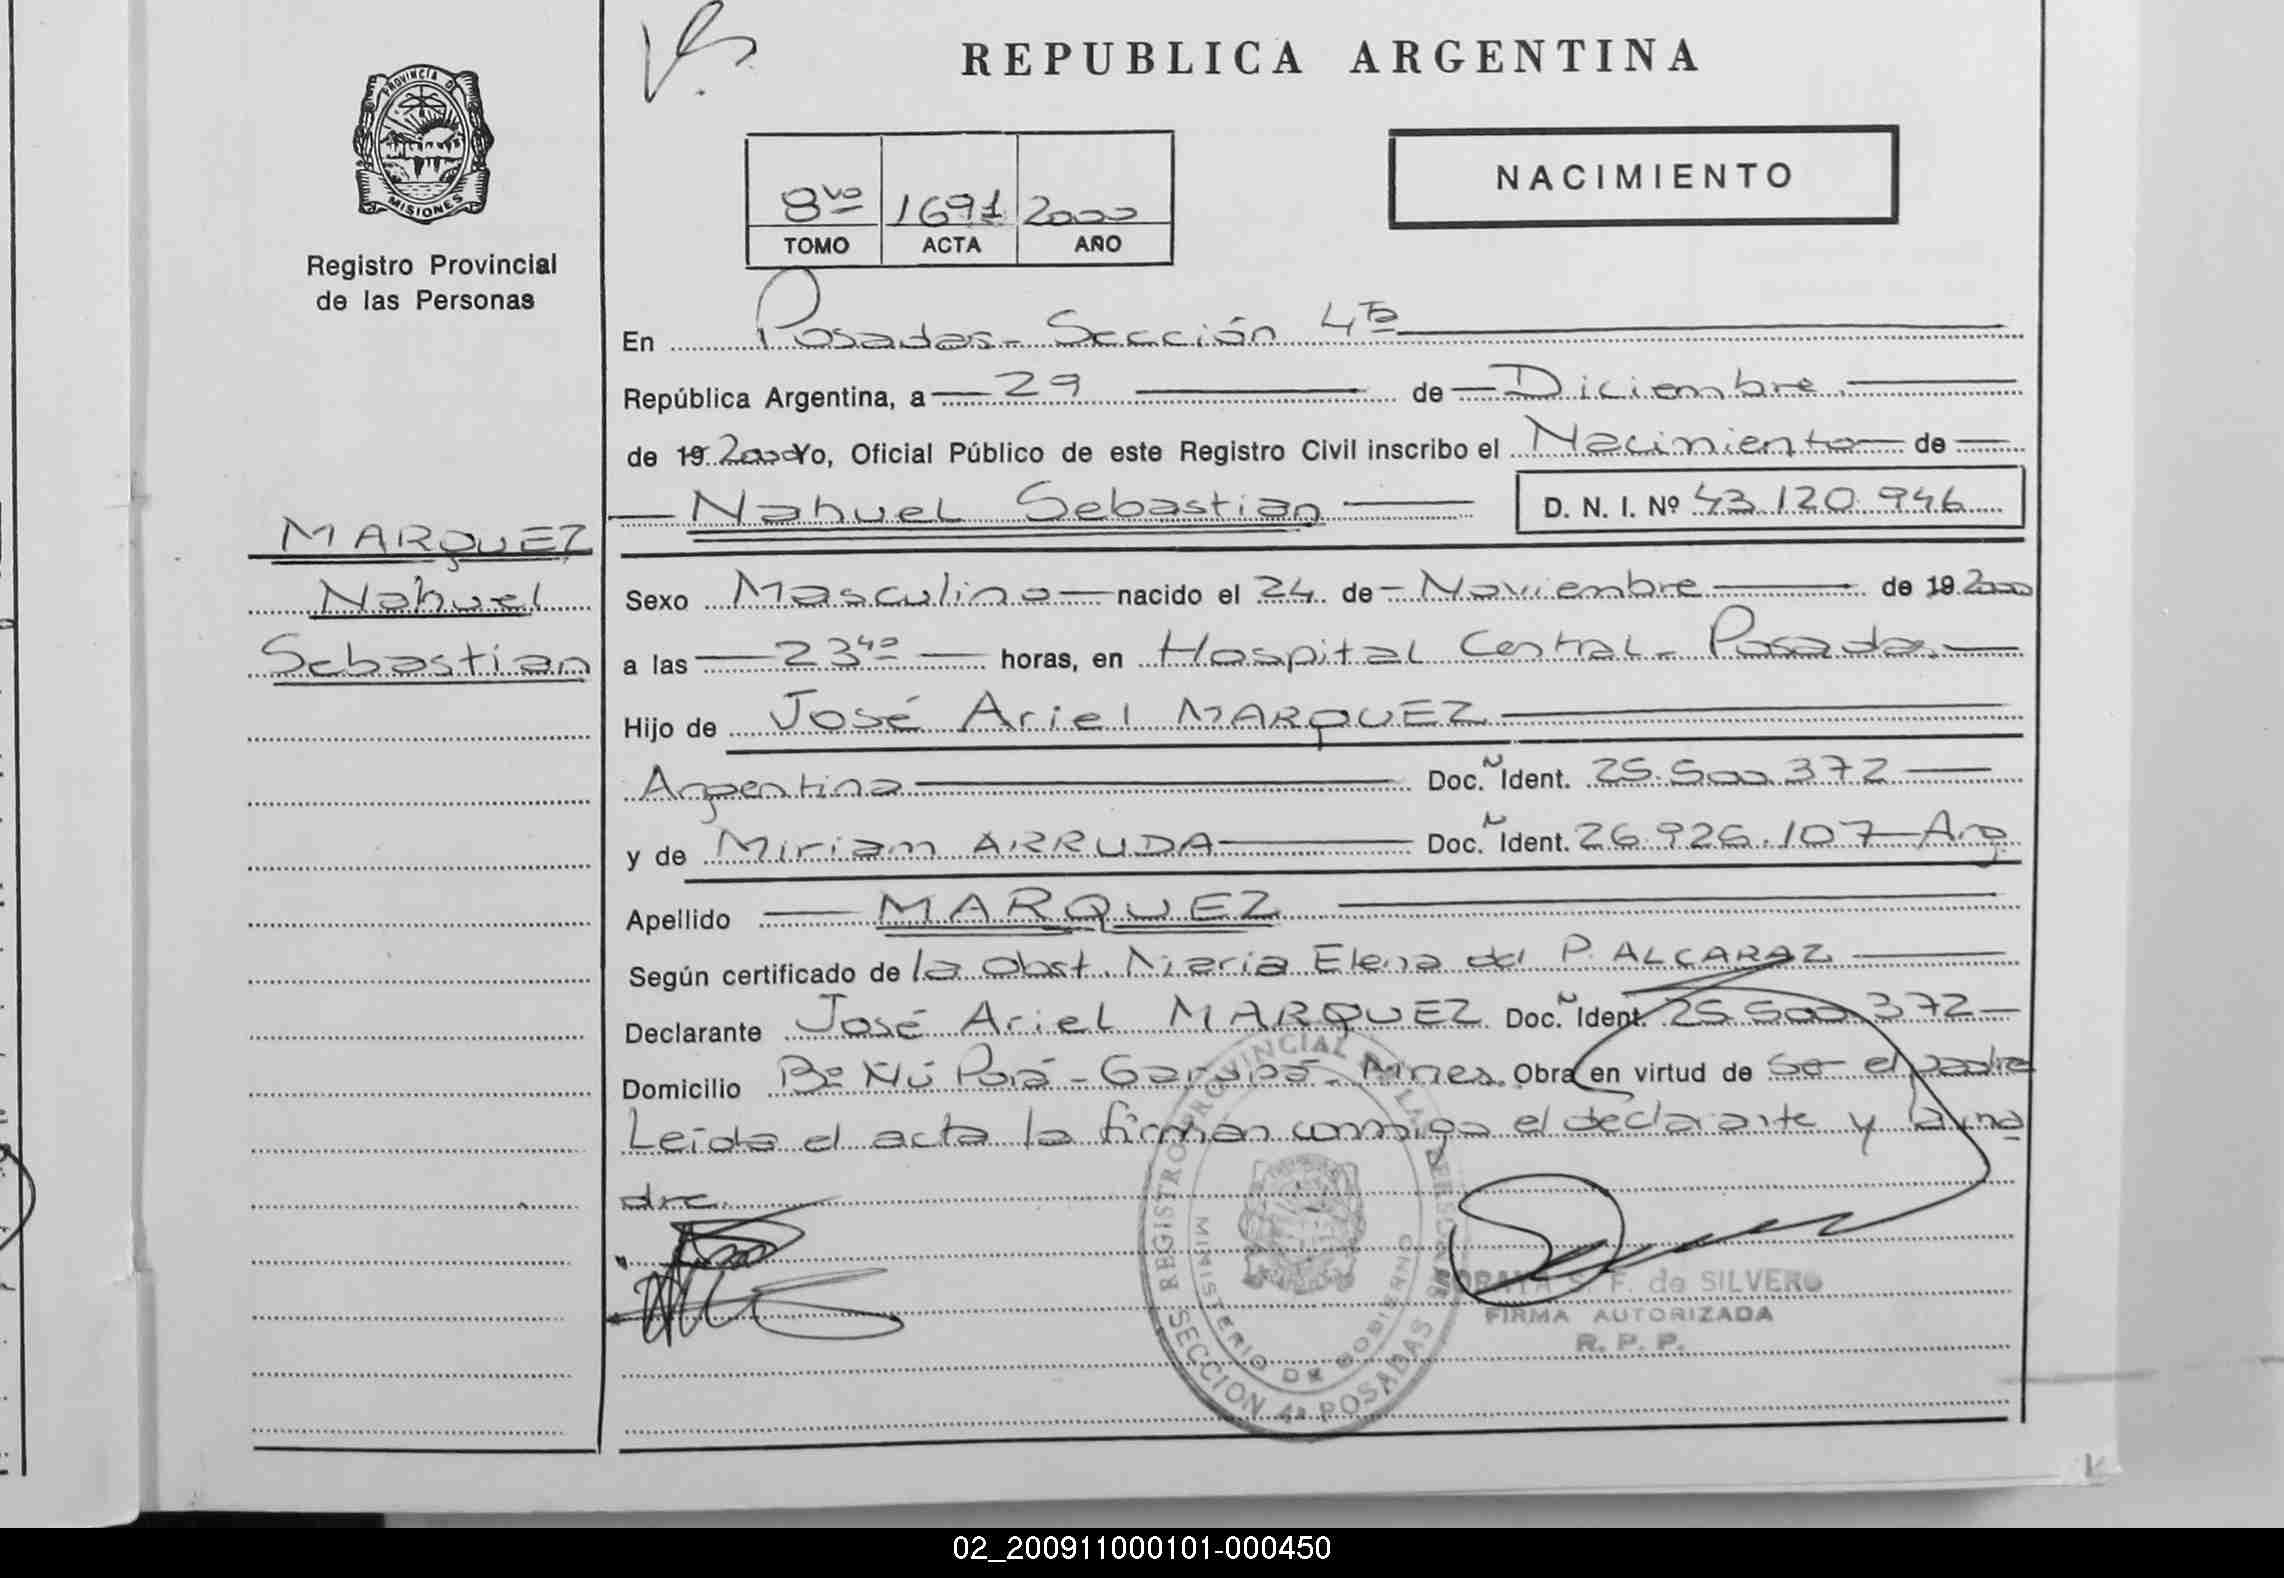 REPUBLICA ARGENTINA
PROVINCIA D
MISIONES
Registro Provincial
de las Personas
NACIMIENTO
8vo 1691 2000
TOMO ACTA AÑO
En Posadas - Sección 4ta
República Argentina, a 29 de Diciembre
de 19 2000 Yo, Oficial Público de este Registro Civil inscribo el Nacimiento de
Nahuel Sebastian D. N. I. Nº 43.120.946
MARQUEZ
Nahuel
Sebastian
Sexo Masculino nacido el 24 de Noviembre de 19 2000
a las 23 40 horas, en Hospital Central - Posadas.
Hijo de José Ariel MARQUEZ
Argentina Doc. Ñ Ident. 25.500.372
y de Miriam ARRUDA Doc. Ñ Ident. 26.926.107 - Arg.
Apellido MARQUEZ
Según certificado de la Obst. Maria Elena del P. ALCARAZ
Declarante José Ariel MARQUEZ Doc. Ñ Ident. 25.500.372
Domicilio Bº Ñú Porá - Garupá - Mnes. Obra en virtud de ser el padre
Leída el acta la firman conmigo el declarante y la ma
dre.
REGISTRO PROVINCIAL DE LAS PERSONAS
MINISTERIO DE GOBIERNO
SECCION 4ª POSADAS
S. F. de SILVERO
FIRMA AUTORIZADA
R. P. P.
02_200911000101-000450